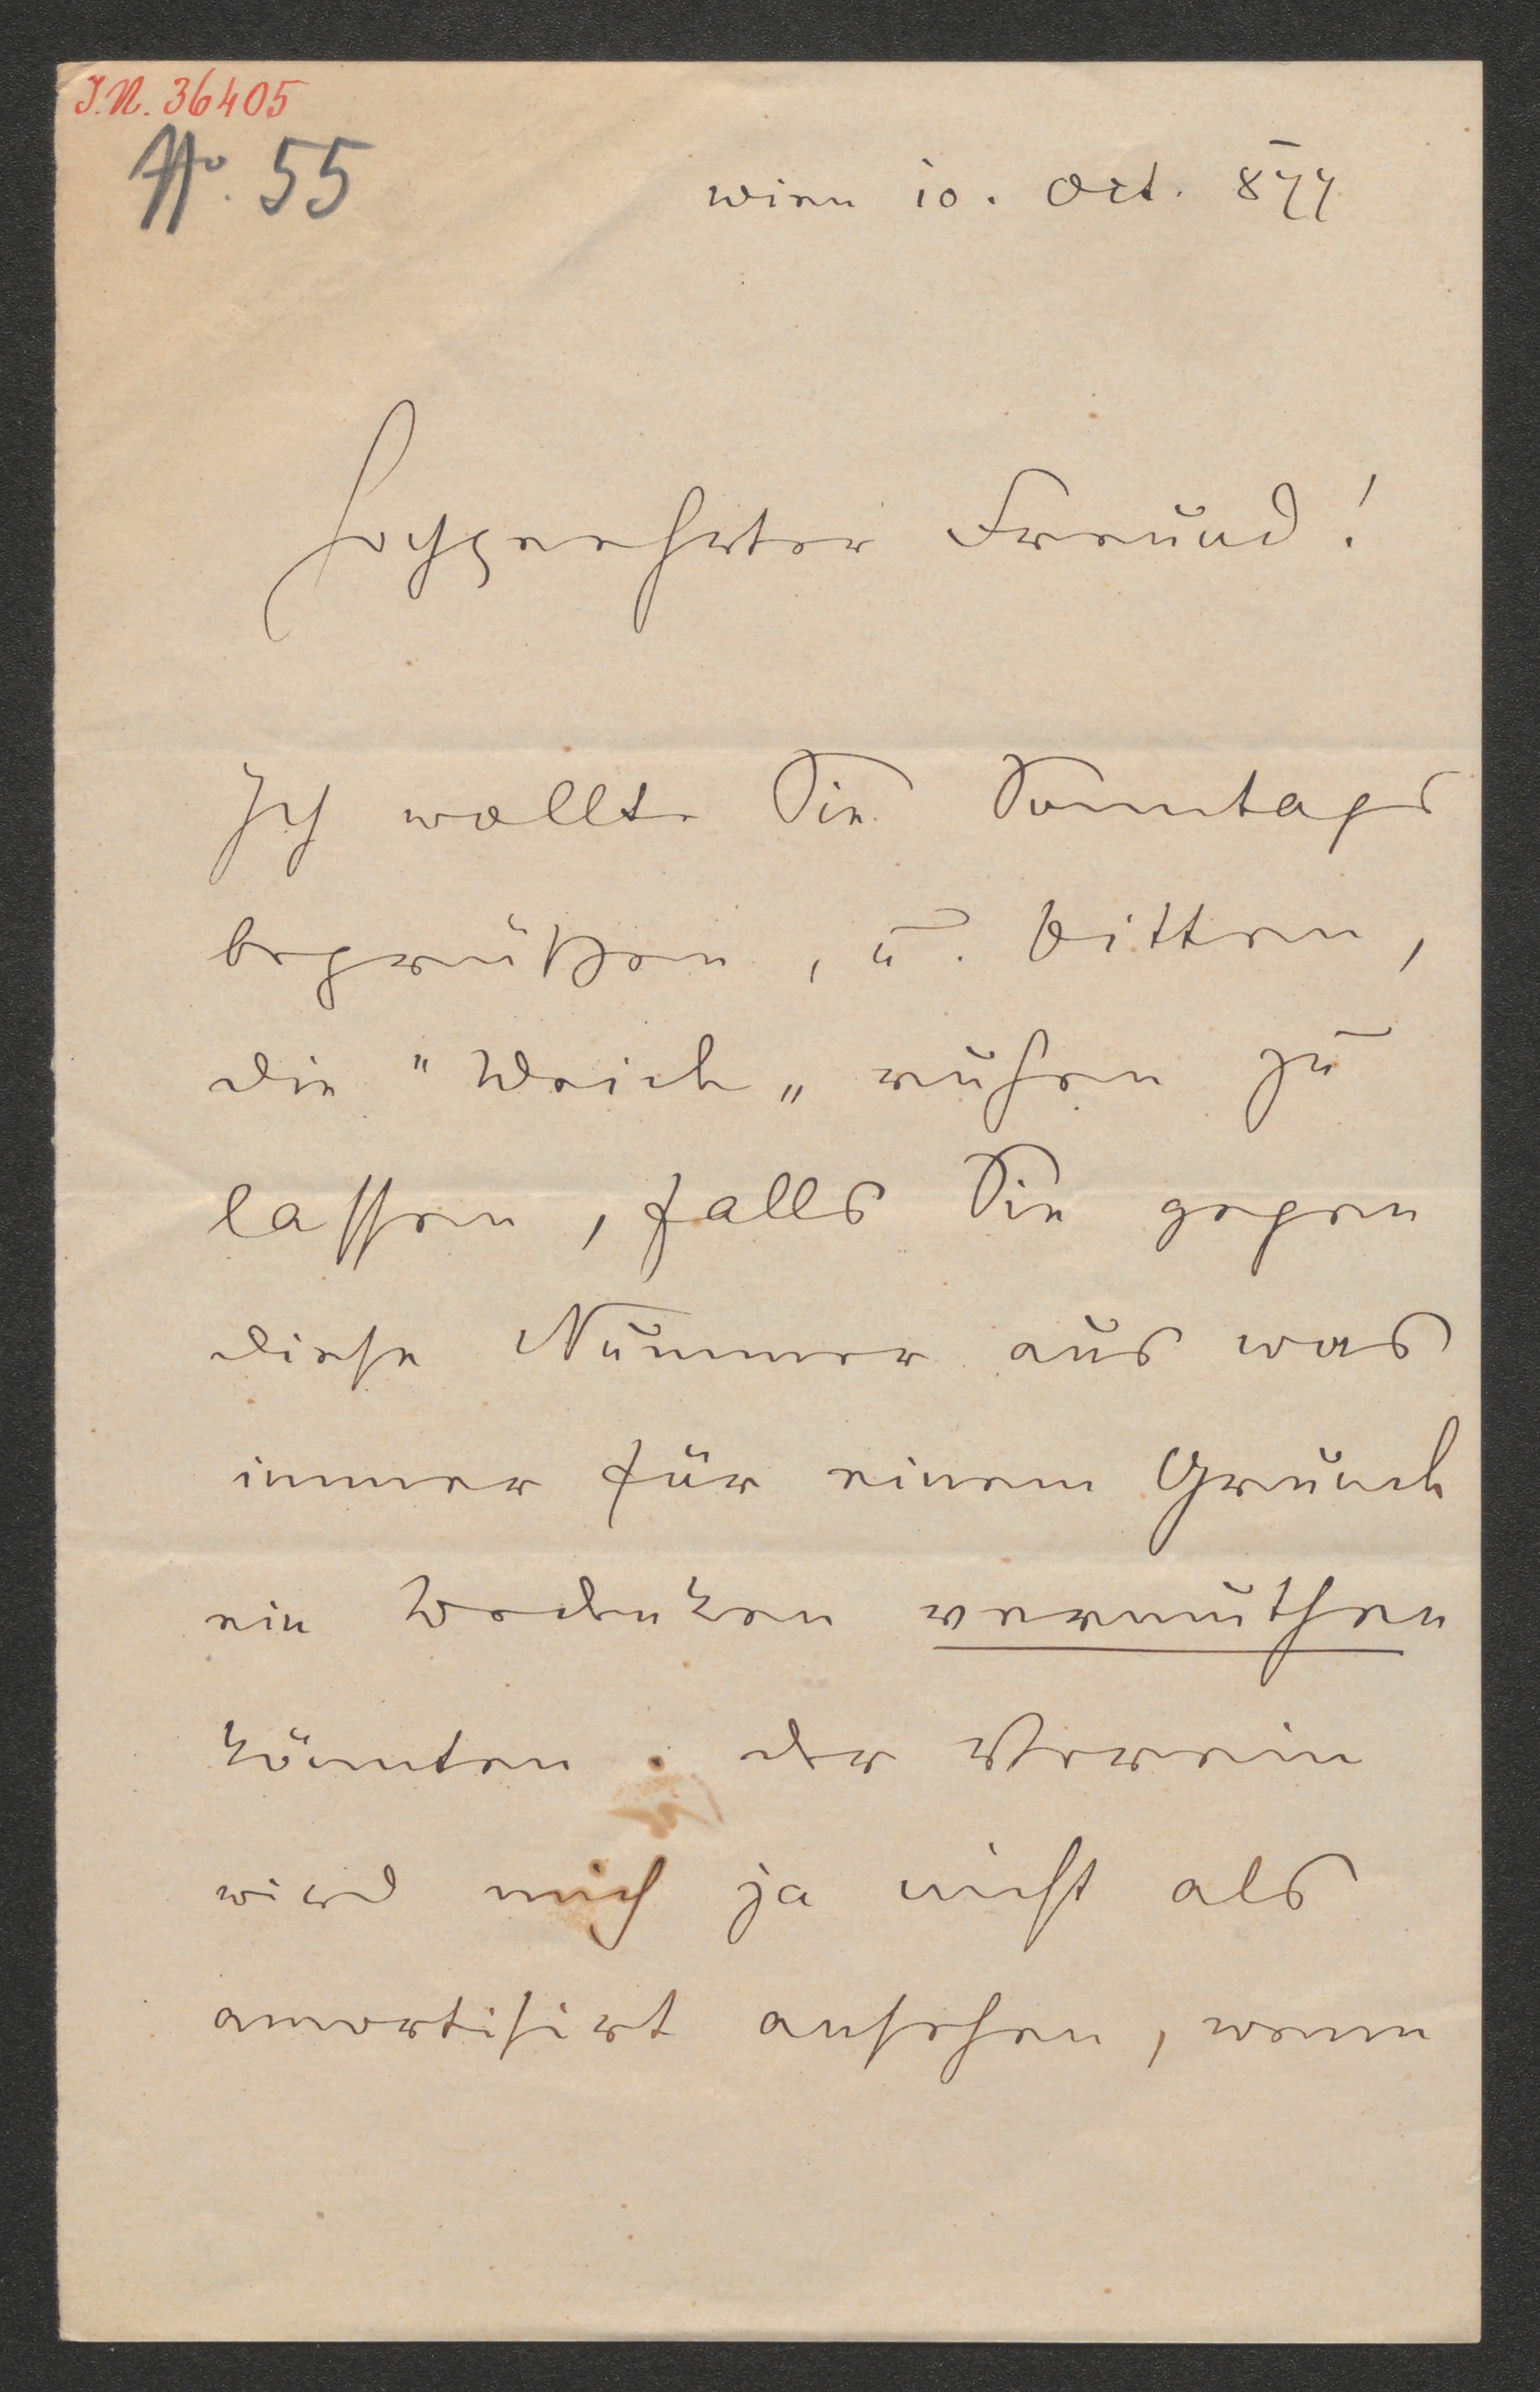 J.N. 36405
No. 55
Wien 10. Oct. 877
Hochgeehrter Freund!
Ich wollte Sie Sonntags
begrüßen, u. bitten,
die "
" ruhen zu
lassen, falls Sie gegen
diese Nummer aus was
immer für einem Grund
ein Bedenken vermuthen
könnten. der Verein
wird mich ja nicht als
amortisirt ansehen, wenn